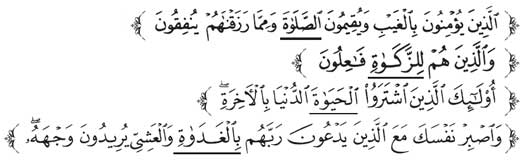 ﴿ ٱلَّذِينَ يُؤْمِنُونَ بِٱلْغَيْبِ وَيُقِيمُونَ ٱلصَّلَوٰةَ وَمِمَّا رَزَقْنَٰهُمْ يُنفِقُونَ ﴾
﴿ وَٱلَّذِينَ هُمْ لِلزَّكَوٰةِ فَٰعِلُونَ ﴾
﴿ أُو۟لَٰٓئِكَ ٱلَّذِينَ ٱشْتَرَوُا۟ ٱلْحَيَوٰةَ ٱلدُّنْيَا بِٱلْءَاخِرَةِ ۖ ﴾
﴿ وَٱصْبِرْ نَفْسَكَ مَعَ ٱلَّذِينَ يَدْعُونَ رَبَّهُم بِٱلْغَدَوٰةِ وَٱلْعَشِىِّ يُرِيدُونَ وَجْهَهُۥ ۖ ﴾